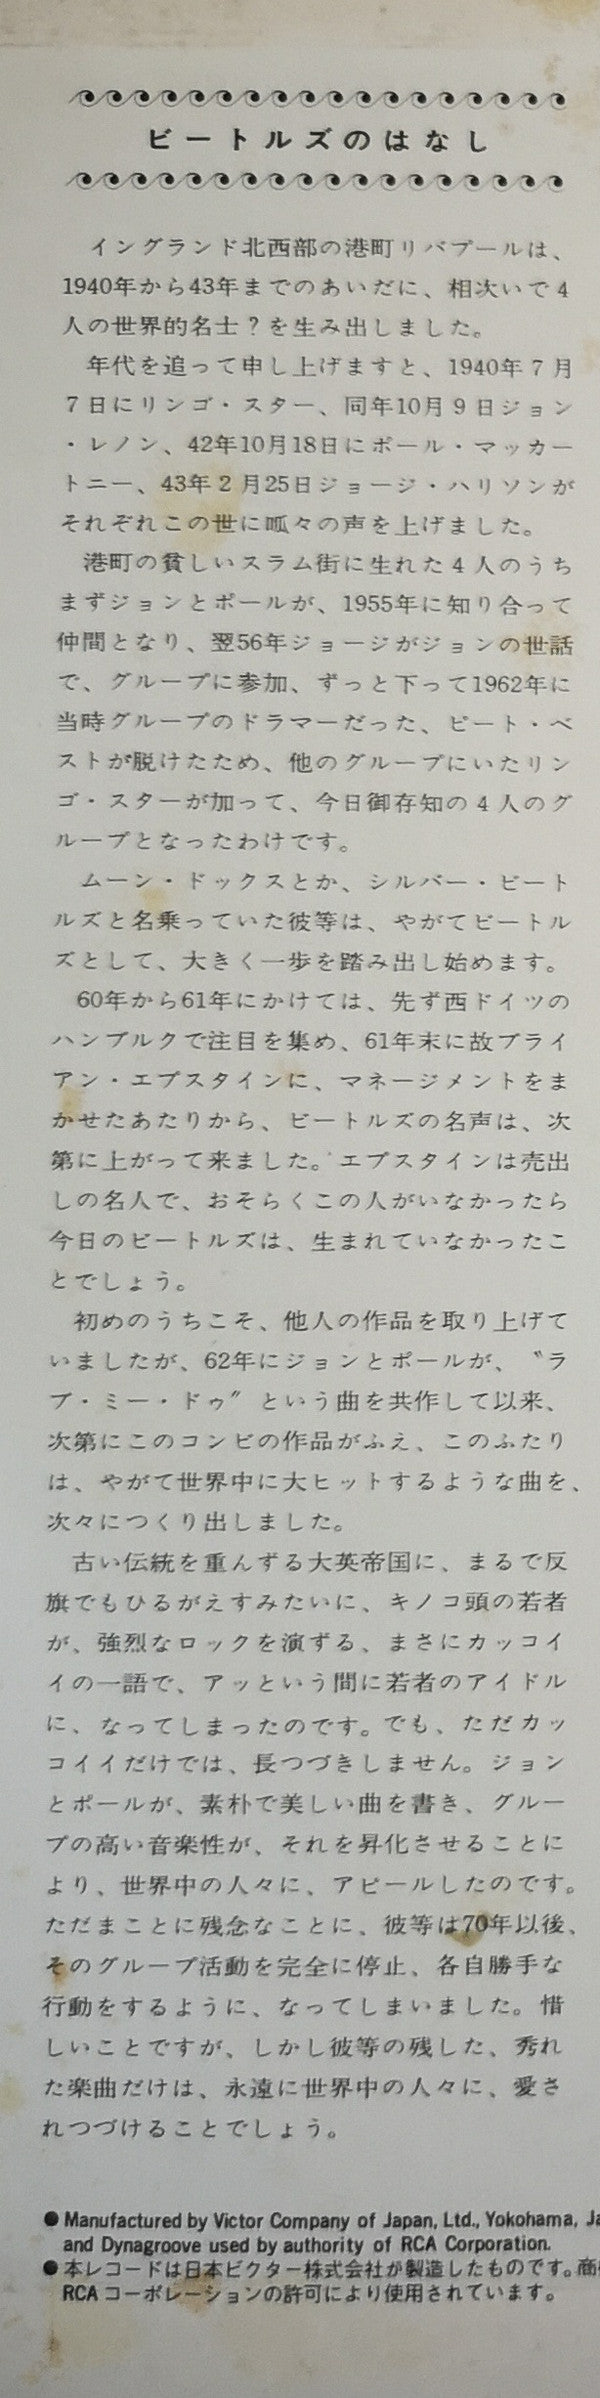 ビートルズのはなし
イングランド北西部の港町リバプールは、
1940年から43年までのあいだに、相次いで4
人の世界的名士？を生み出しました。
年代を追って申し上げますと、1940年7月
7日にリンゴ・スター、同年10月9日ジョン
・レノン、42年10月18日にポール・マッカー
トニー、43年2月25日ジョージ・ハリソンが
それぞれこの世に呱々の声を上げました。
港町の貧しいスラム街に生れた4人のうち
まずジョンとポールが、1955年に知り合って
仲間となり、翌56年ジョージがジョンの世話
で、グループに参加、ずっと下って1962年に
当時グループのドラマーだった、ピート・ベ
ストが脱けたため、他のグループにいたリン
ゴ・スターが加って、今日御存知の4人のグ
ループとなったわけです。
ムーン・ドックスとか、シルバー・ビート
ルズと名乗っていた彼等は、やがてビートル
ズとして、大きく一歩を踏み出し始めます。
60年から61年にかけては、先ず西ドイツの
ハンブルクで注目を集め、61年末に故ブライ
アン・エプスタインに、マネージメントをま
かせたあたりから、ビートルズの名声は、次
第に上がって来ました。エプスタインは売出
しの名人で、おそらくこの人がいなかったら
今日のビートルズは、生まれていなかったこ
とでしょう。
初めのうちこそ、他人の作品を取り上げて
いましたが、62年にジョンとポールが、〝ラ
ブ・ミー・ドゥ〟という曲を共作して以来、
次第にこのコンビの作品がふえ、このふたり
は、やがて世界中に大ヒットするような曲を、
次々につくり出しました。
古い伝統を重んずる大英帝国に、まるで反
旗でもひるがえすみたいに、キノコ頭の若者
が、強烈なロックを演ずる、まさにカッコイ
イの一語で、アッという間に若者のアイドル
に、なってしまったのです。でも、ただカッ
コイイだけでは、長つづきしません。ジョン
とポールが、素朴で美しい曲を書き、グルー
プの高い音楽性が、それを昇化させることに
より、世界中の人々に、アピールしたのです。
ただまことに残念なことに、彼等は70年以後、
そのグループ活動を完全に停止、各自勝手な
行動をするように、なってしまいました。惜
しいことですが、しかし彼等の残した、秀れ
た楽曲だけは、永遠に世界中の人々に、愛さ
れつづけることでしょう。
● Manufactured by Victor Company of Japan, Ltd., Yokohama, Ja
and Dynagroove used by authority of RCA Corporation.
● 本レコードは日本ビクター株式会社が製造したものです。商
RCAコーポレーションの許可により使用されています。